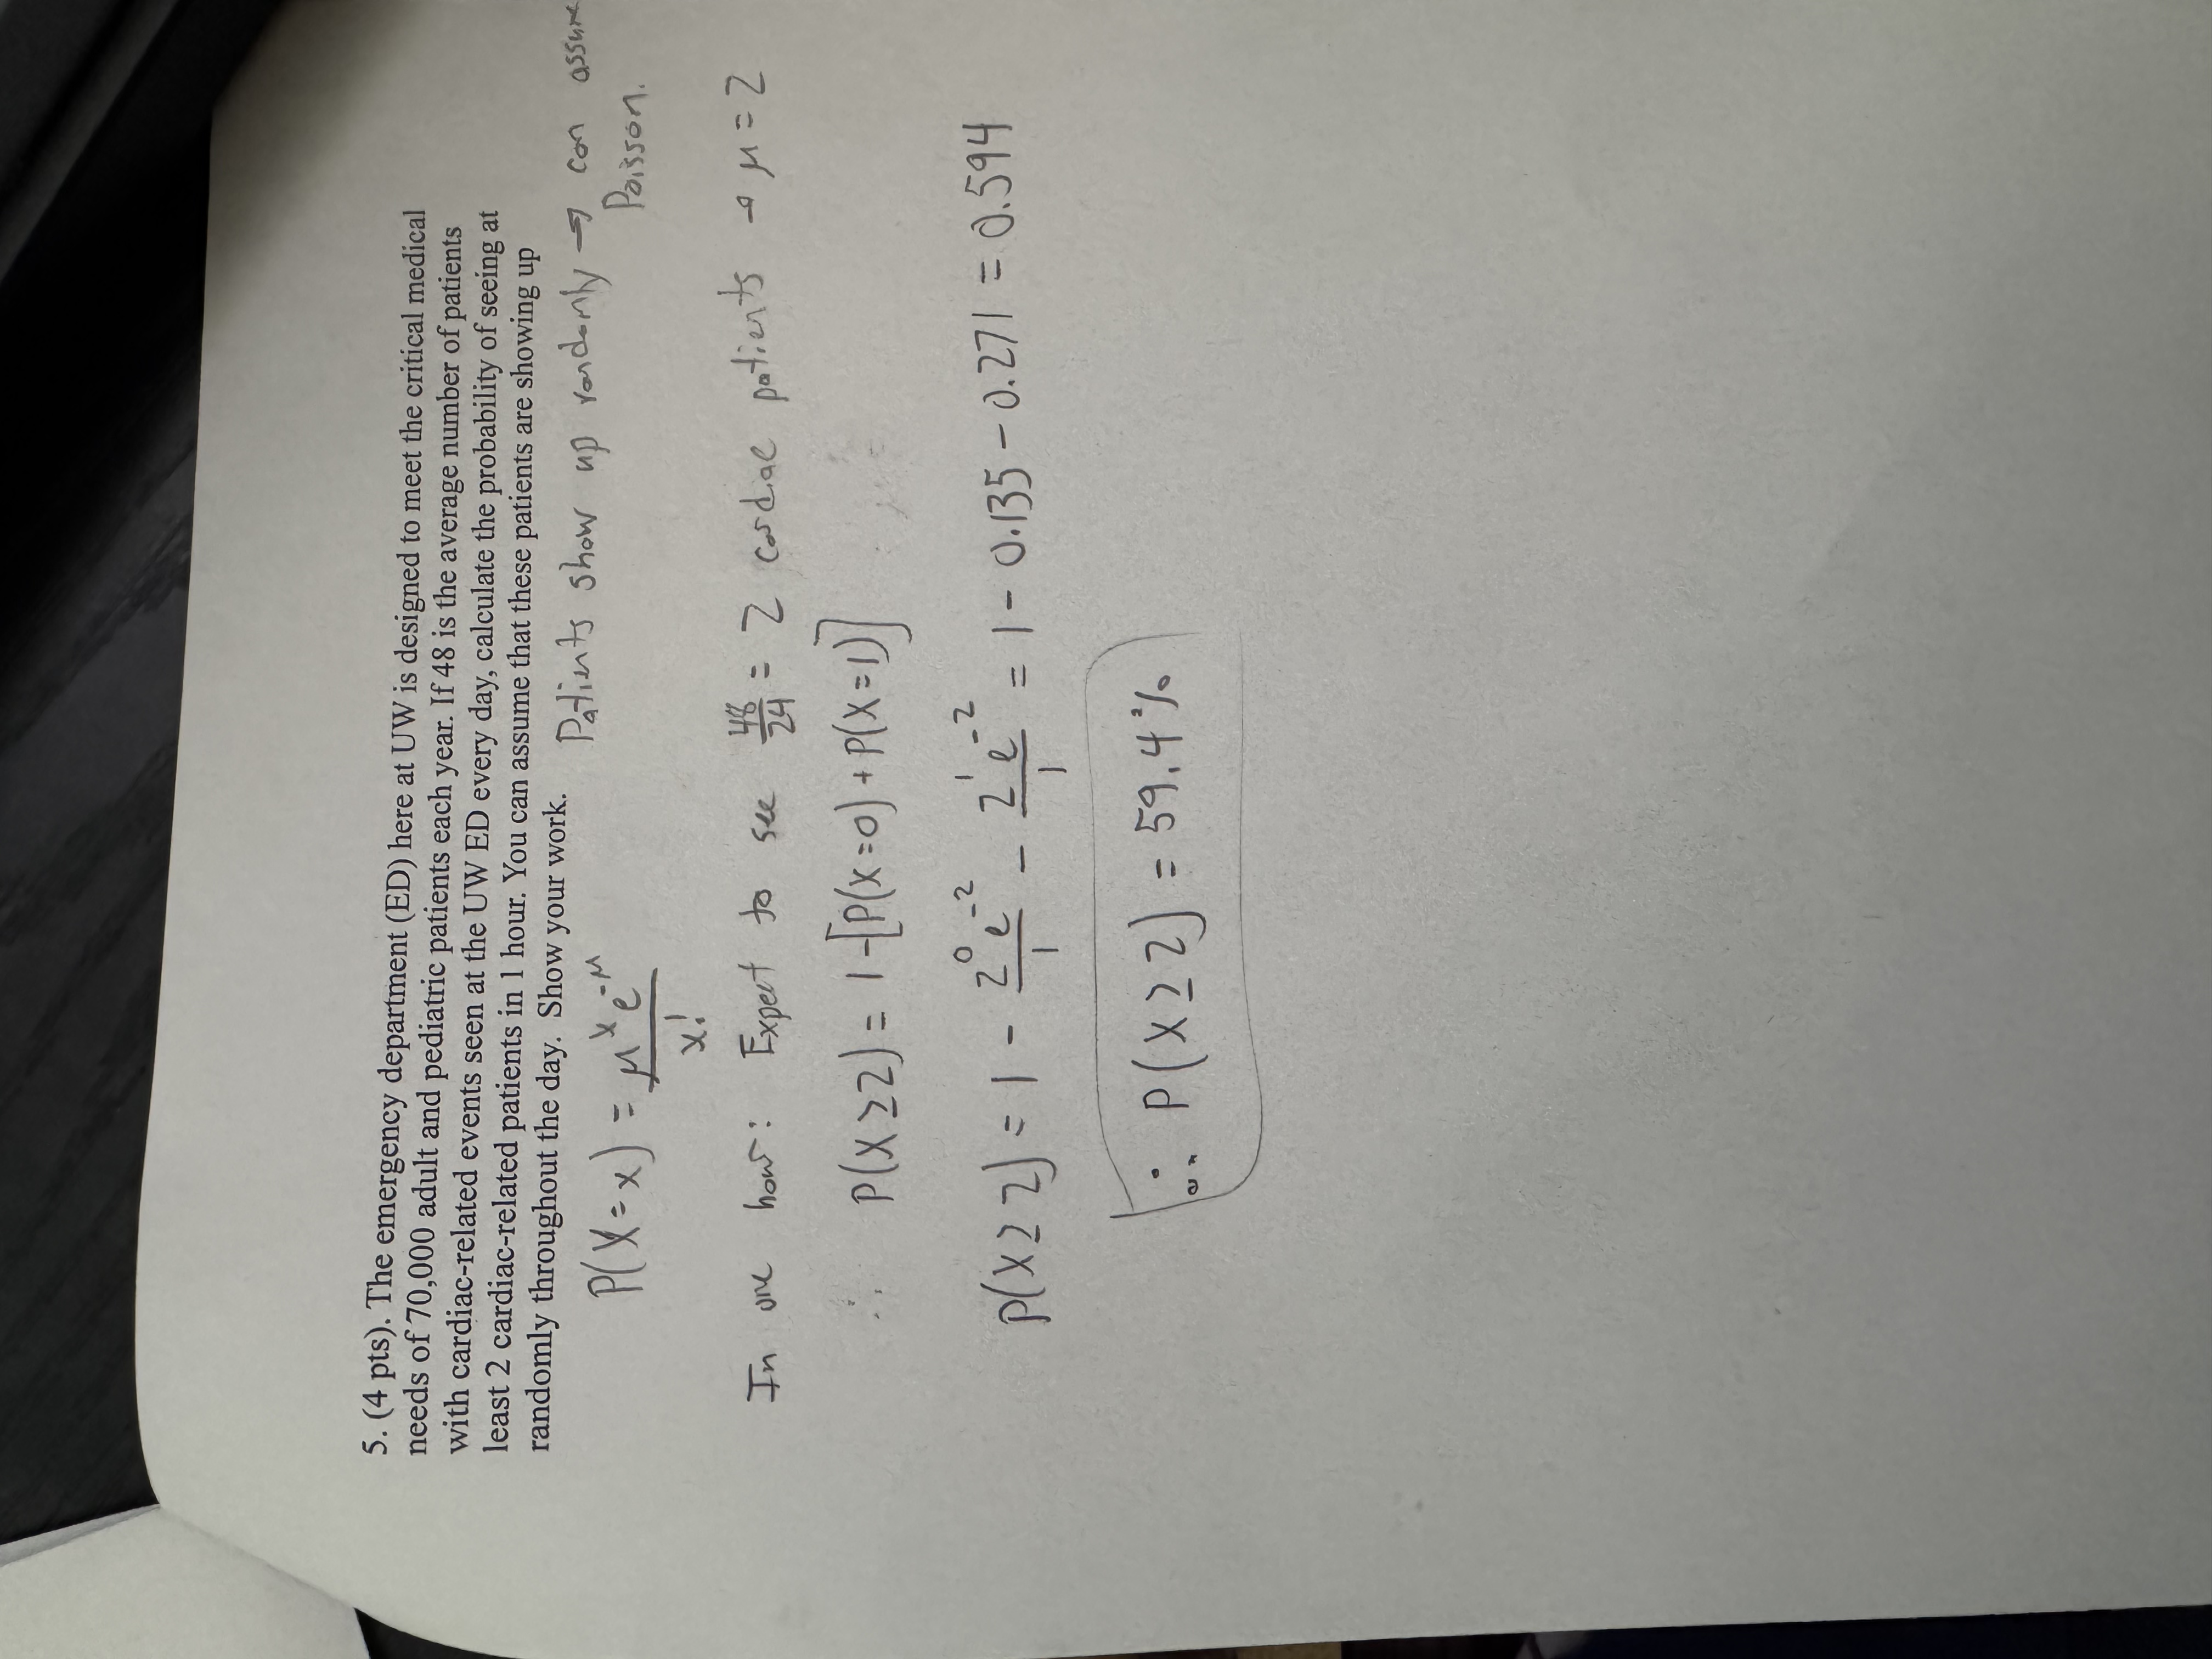 5. (4 pts). The emergency department (ED) here at UW is designed to meet the critical medical
needs of 70,000 adult and pediatric patients each year. If 48 is the average number of patients
with cardiac-related events seen at the UW ED every day, calculate the probability of seeing at
least 2 cardiac-related patients in 1 hour. You can assume that these patients are showing up
randomly throughout the day. Show your work.
Patients show up randomly → can assume
Poisson.
P(X=x) = μ^x e^-μ / x!
In one hour: Expect to see 48/24 = 2 cardiac patients → μ = 2
∴ P(X≥2) = 1-[P(X=0) + P(X=1)]
P(X≥2) = 1 - 2^0 e^-2 / 1 - 2^1 e^-2 / 1 = 1 - 0.135 - 0.271 = 0.594
∴ P(X≥2) = 59.4%